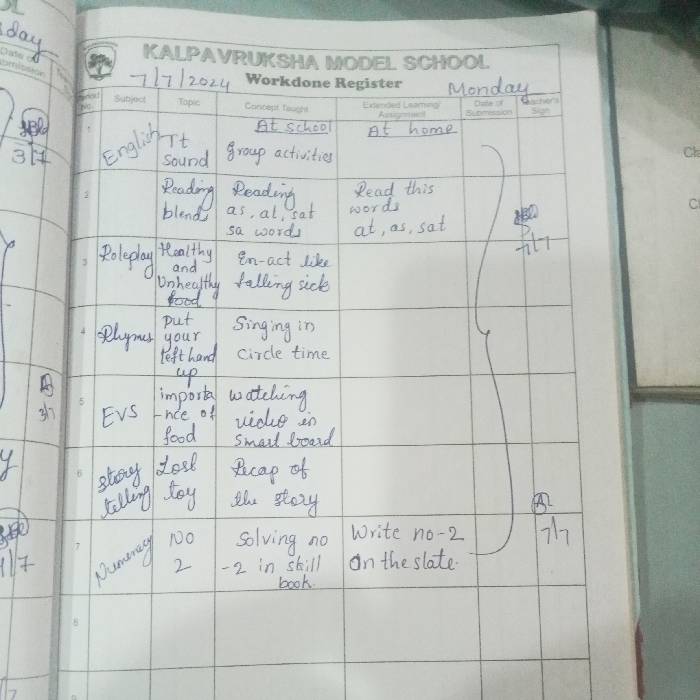 day
KALPAVRUKSHA MODEL SCHOOL
7/7/2024 Workdone Register Monday
Period No. Subject Topic Concept Taught Extended Learning/ Assignment Date of Submission Teacher's Sign
At school At home
1 English Tt sound group activities
2 Reading blends Reading as, at, sat sa words Read this words at, as, sat
7/7
3 Roleplay Healthy and Unhealthy food En-act like falling sick
4 Rhymes put your left hand up Singing in circle time
5 EVS importa -nce of food watching video in Smart board
6 story telling Lost toy Recap of the story
7 Numeracy No 2 Solving no -2 in skill book. Write no-2 on the slate. 7/7
8
9
3/7
3/7